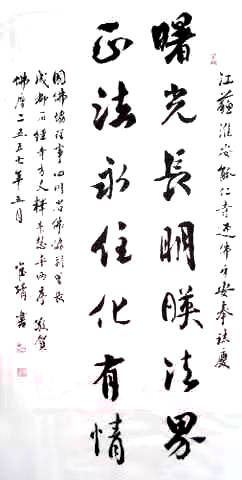 江蘇淮安能仁寺佛平安奉誌慶
曙光長明暎法界
正法永住化有情
國佛協理事四川省佛協副會長
成都石經寺方丈釋 敬賀
佛曆二五五七年五月
書